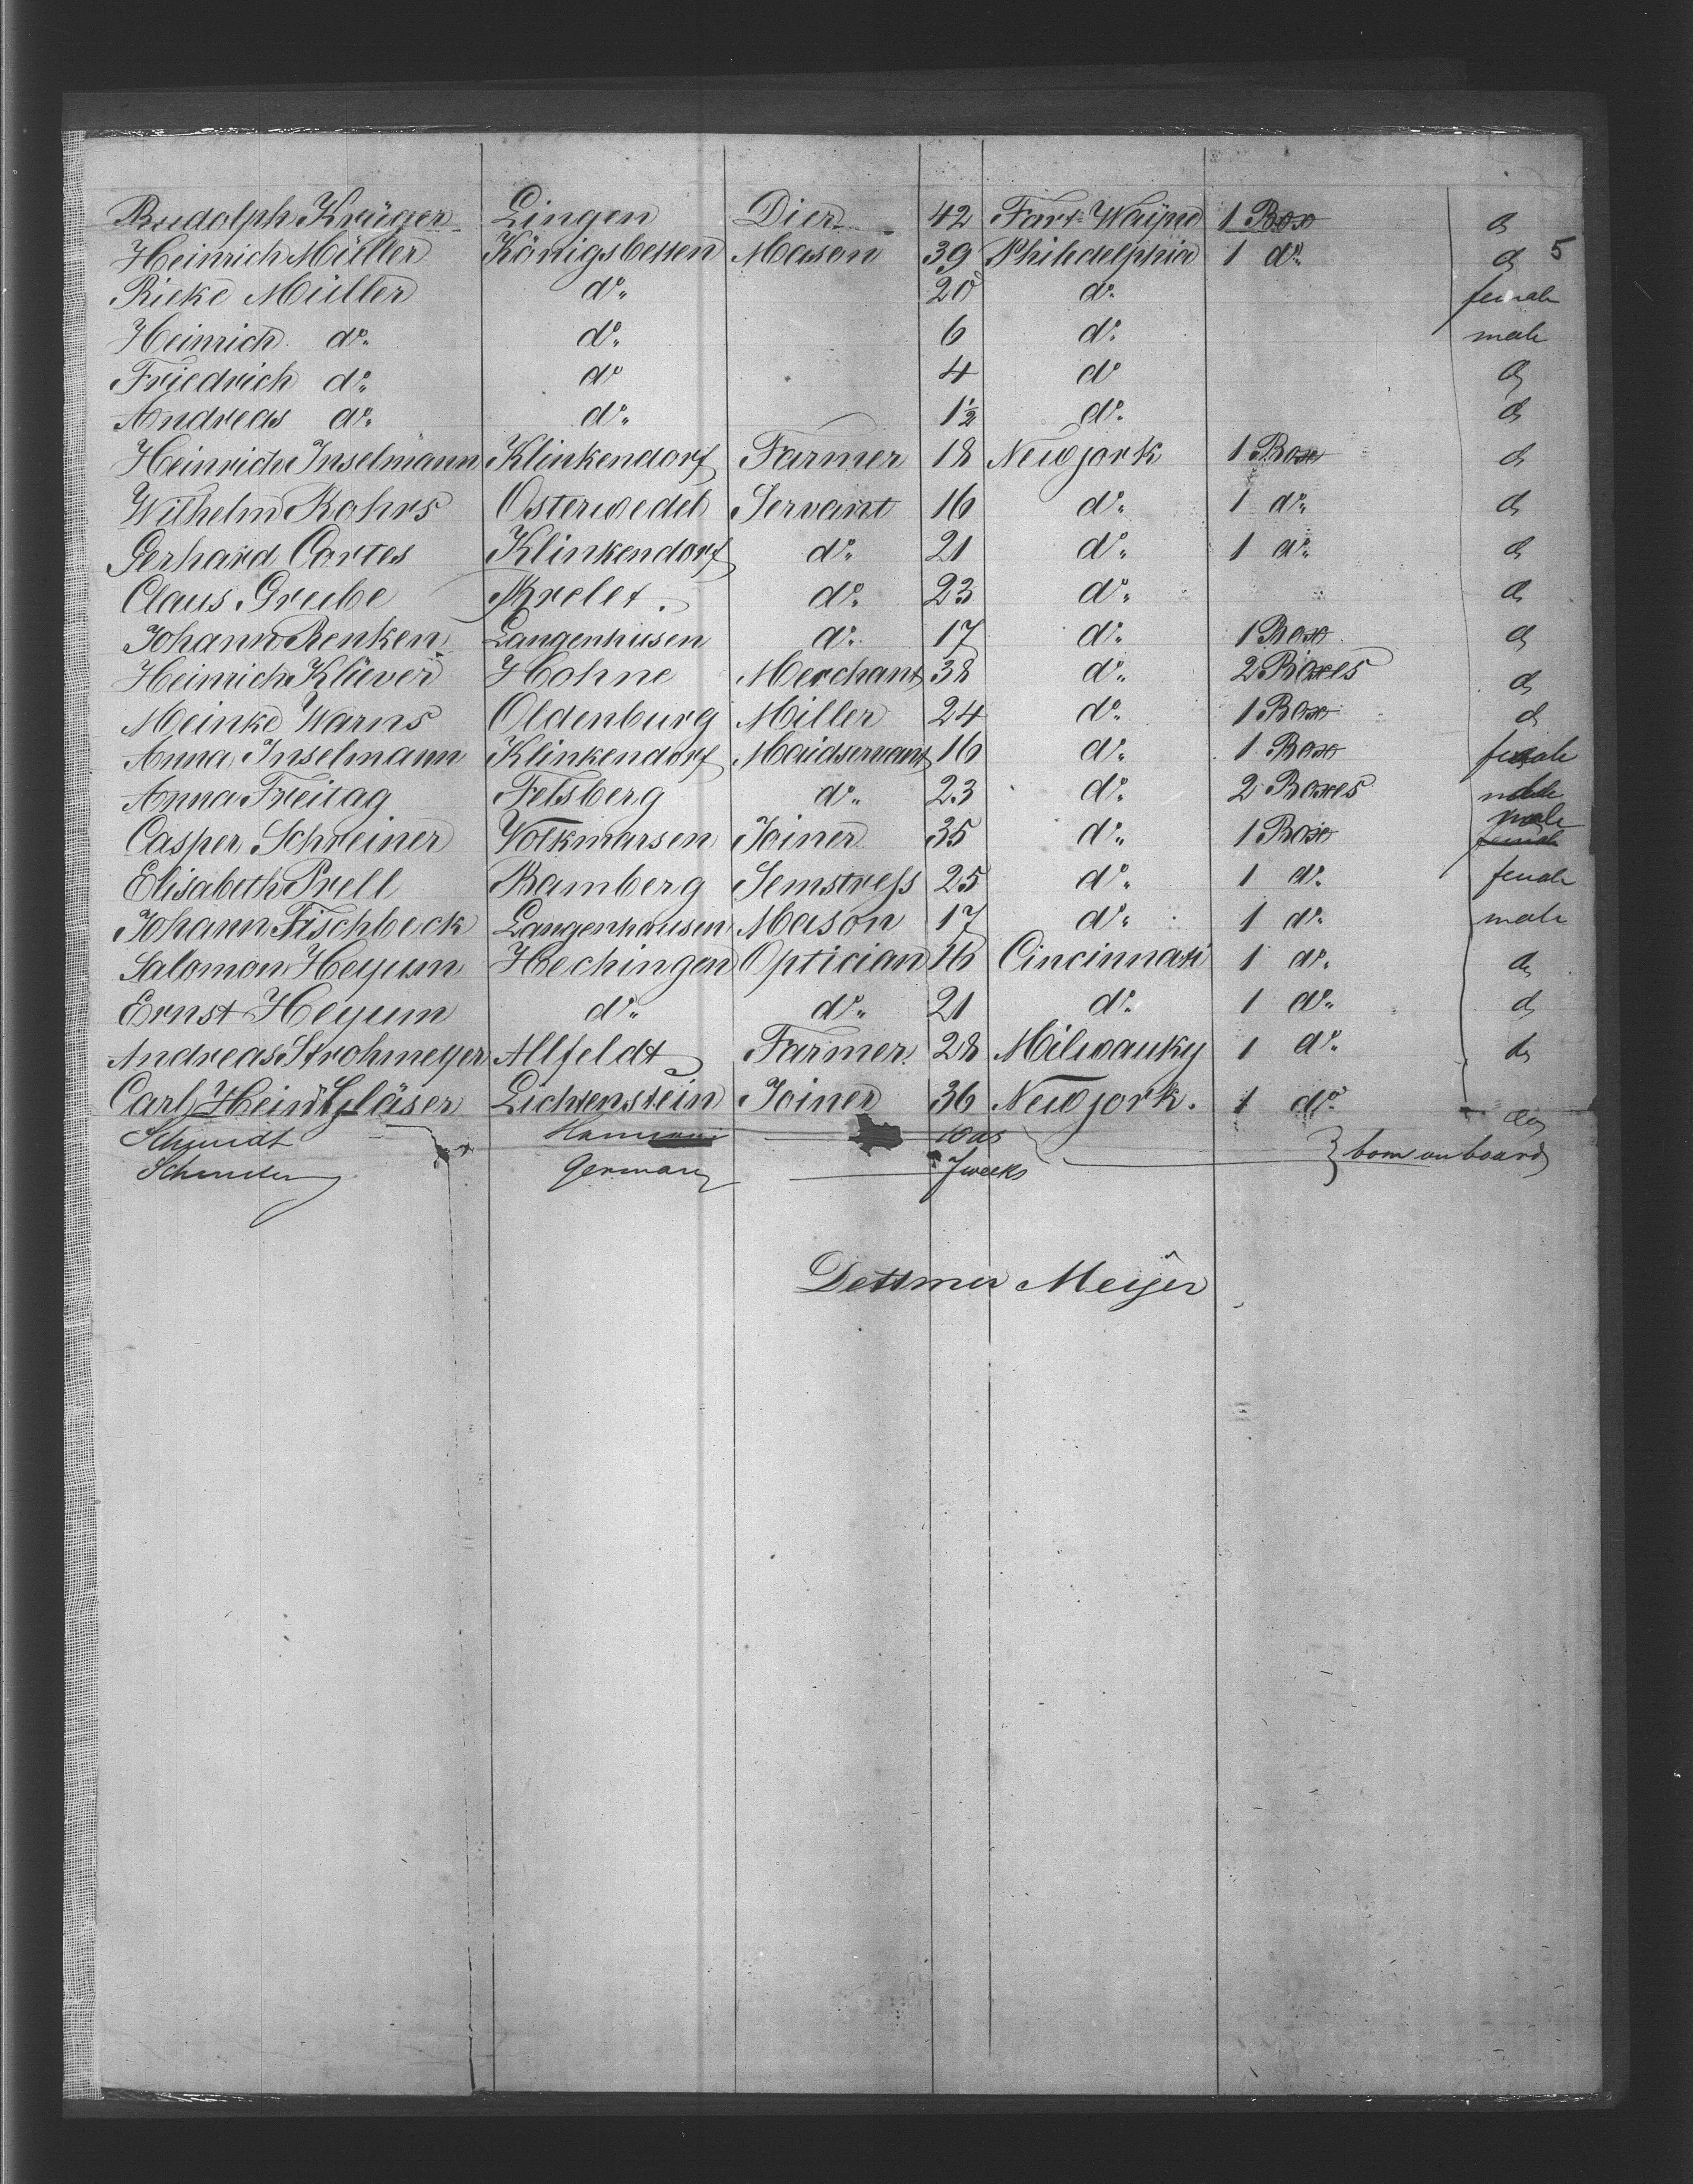 Rudolph Krüger Lingen Dier 42 Fort Wayne 1 Box d
5
Heinrich Müller Königsbessen Mason 39 Philadelphia 1 do. d
Rieke Müller do. 20 do. female
Heinrich do. do. 6 do. male
Friedrich do. do 4 do d
Andreas do. do. 1½ do. d
Heinrich Inselmann Klinkendorf Farmer 18 Newjork 1 Box d
Wilhelm Rohrs Osterwedel Servant 16 do. 1 do. d
Gerhard Cortes Klinkendorf do. 21 do. 1 do. d
Claus Greibe do. 23 do. d
Johann Renken Langenhusen do. 17 do. 1 Box d
Heinrich Klüver Hohne Merchant 38 do. 2 Boxes d
Meinke Warns Oldenburg Miller 24 do. 1 Box d
Anna Inselmann Klinkendorf Maidservant 16 do. 1 Box female
Anna Freitag Felsberg do. 23 do. 2 Boxes
Casper Schreiner Volkmarsen Joiner 35 do. 1 Box male female
Elisabeth Prell Bamberg Semstress 25 do. 1 do. female
Johann Fischbeck Langenhausen Mason 17 do. 1 do. male
Salomon Heyum Hechingen Opticien 16 Cincinnati 1 do. do
Ernst Heyum do. do. 21 do. 1 do. d
Andreas Strohmeyer Allfeldt Farmer 28 Milwauky 1 do. do
Carl Hein. Gläser Lichtenstein Joiner 36 Newjork. 1 do. do
Schmidt born on board
Germany 7 weeks
Dettmer Meijer